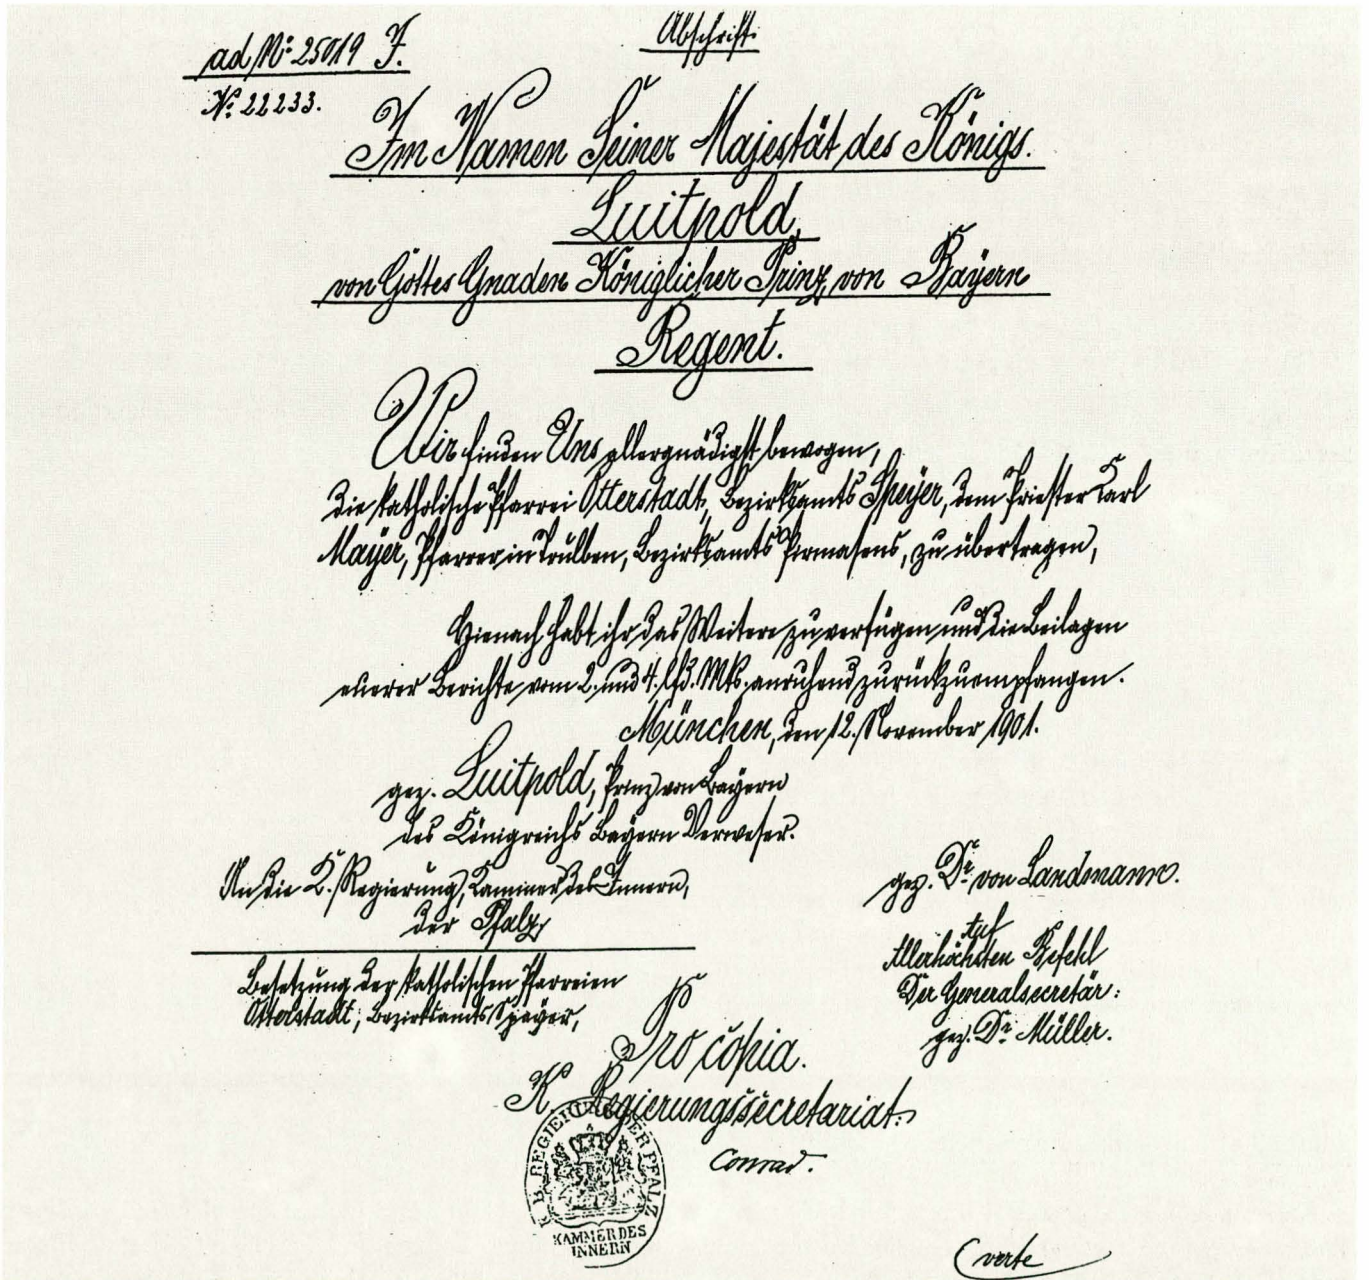 Abschrift.
ad Nº 25019 I.
Nº 22233.
Im Namen Seiner Majestät des Königs.
Luitpold,
von Gottes Gnaden Königlicher Prinz von Bayern
Regent.
Wir finden Uns allergnädigst bewogen,
die katholische Pfarrei Otterstadt, Bezirksamts Speyer, dem Priester Karl
Mayer, Pfarrer in Trulben, Bezirksamts Pirmasens, zu übertragen,
Hienach habt ihr das Weitere zu verfügen und die Beilagen
euerer Berichte vom 2. und 4. lfd. Mts. anruhend zurückzuempfangen.
München, den 12. November 1901.
gez. Luitpold, Prinz von Bayern
des Königreichs Bayern Verweser.
An die K. Regierung, Kammer des Innern,
der Pfalz,
gez. Dr von Landmann.
Besetzung der katholischen Pfarreien
Otterstadt, Bezirksamts Speyer,
Auf
Allerhöchsten Befehl
Der Generalsecretär:
gez. Dr Müller.
Pro copia.
K. Regierungssecretariat:
Conrad.
K. B. REGIERUNG DER PFALZ
KAMMER DES
INNERN
verte